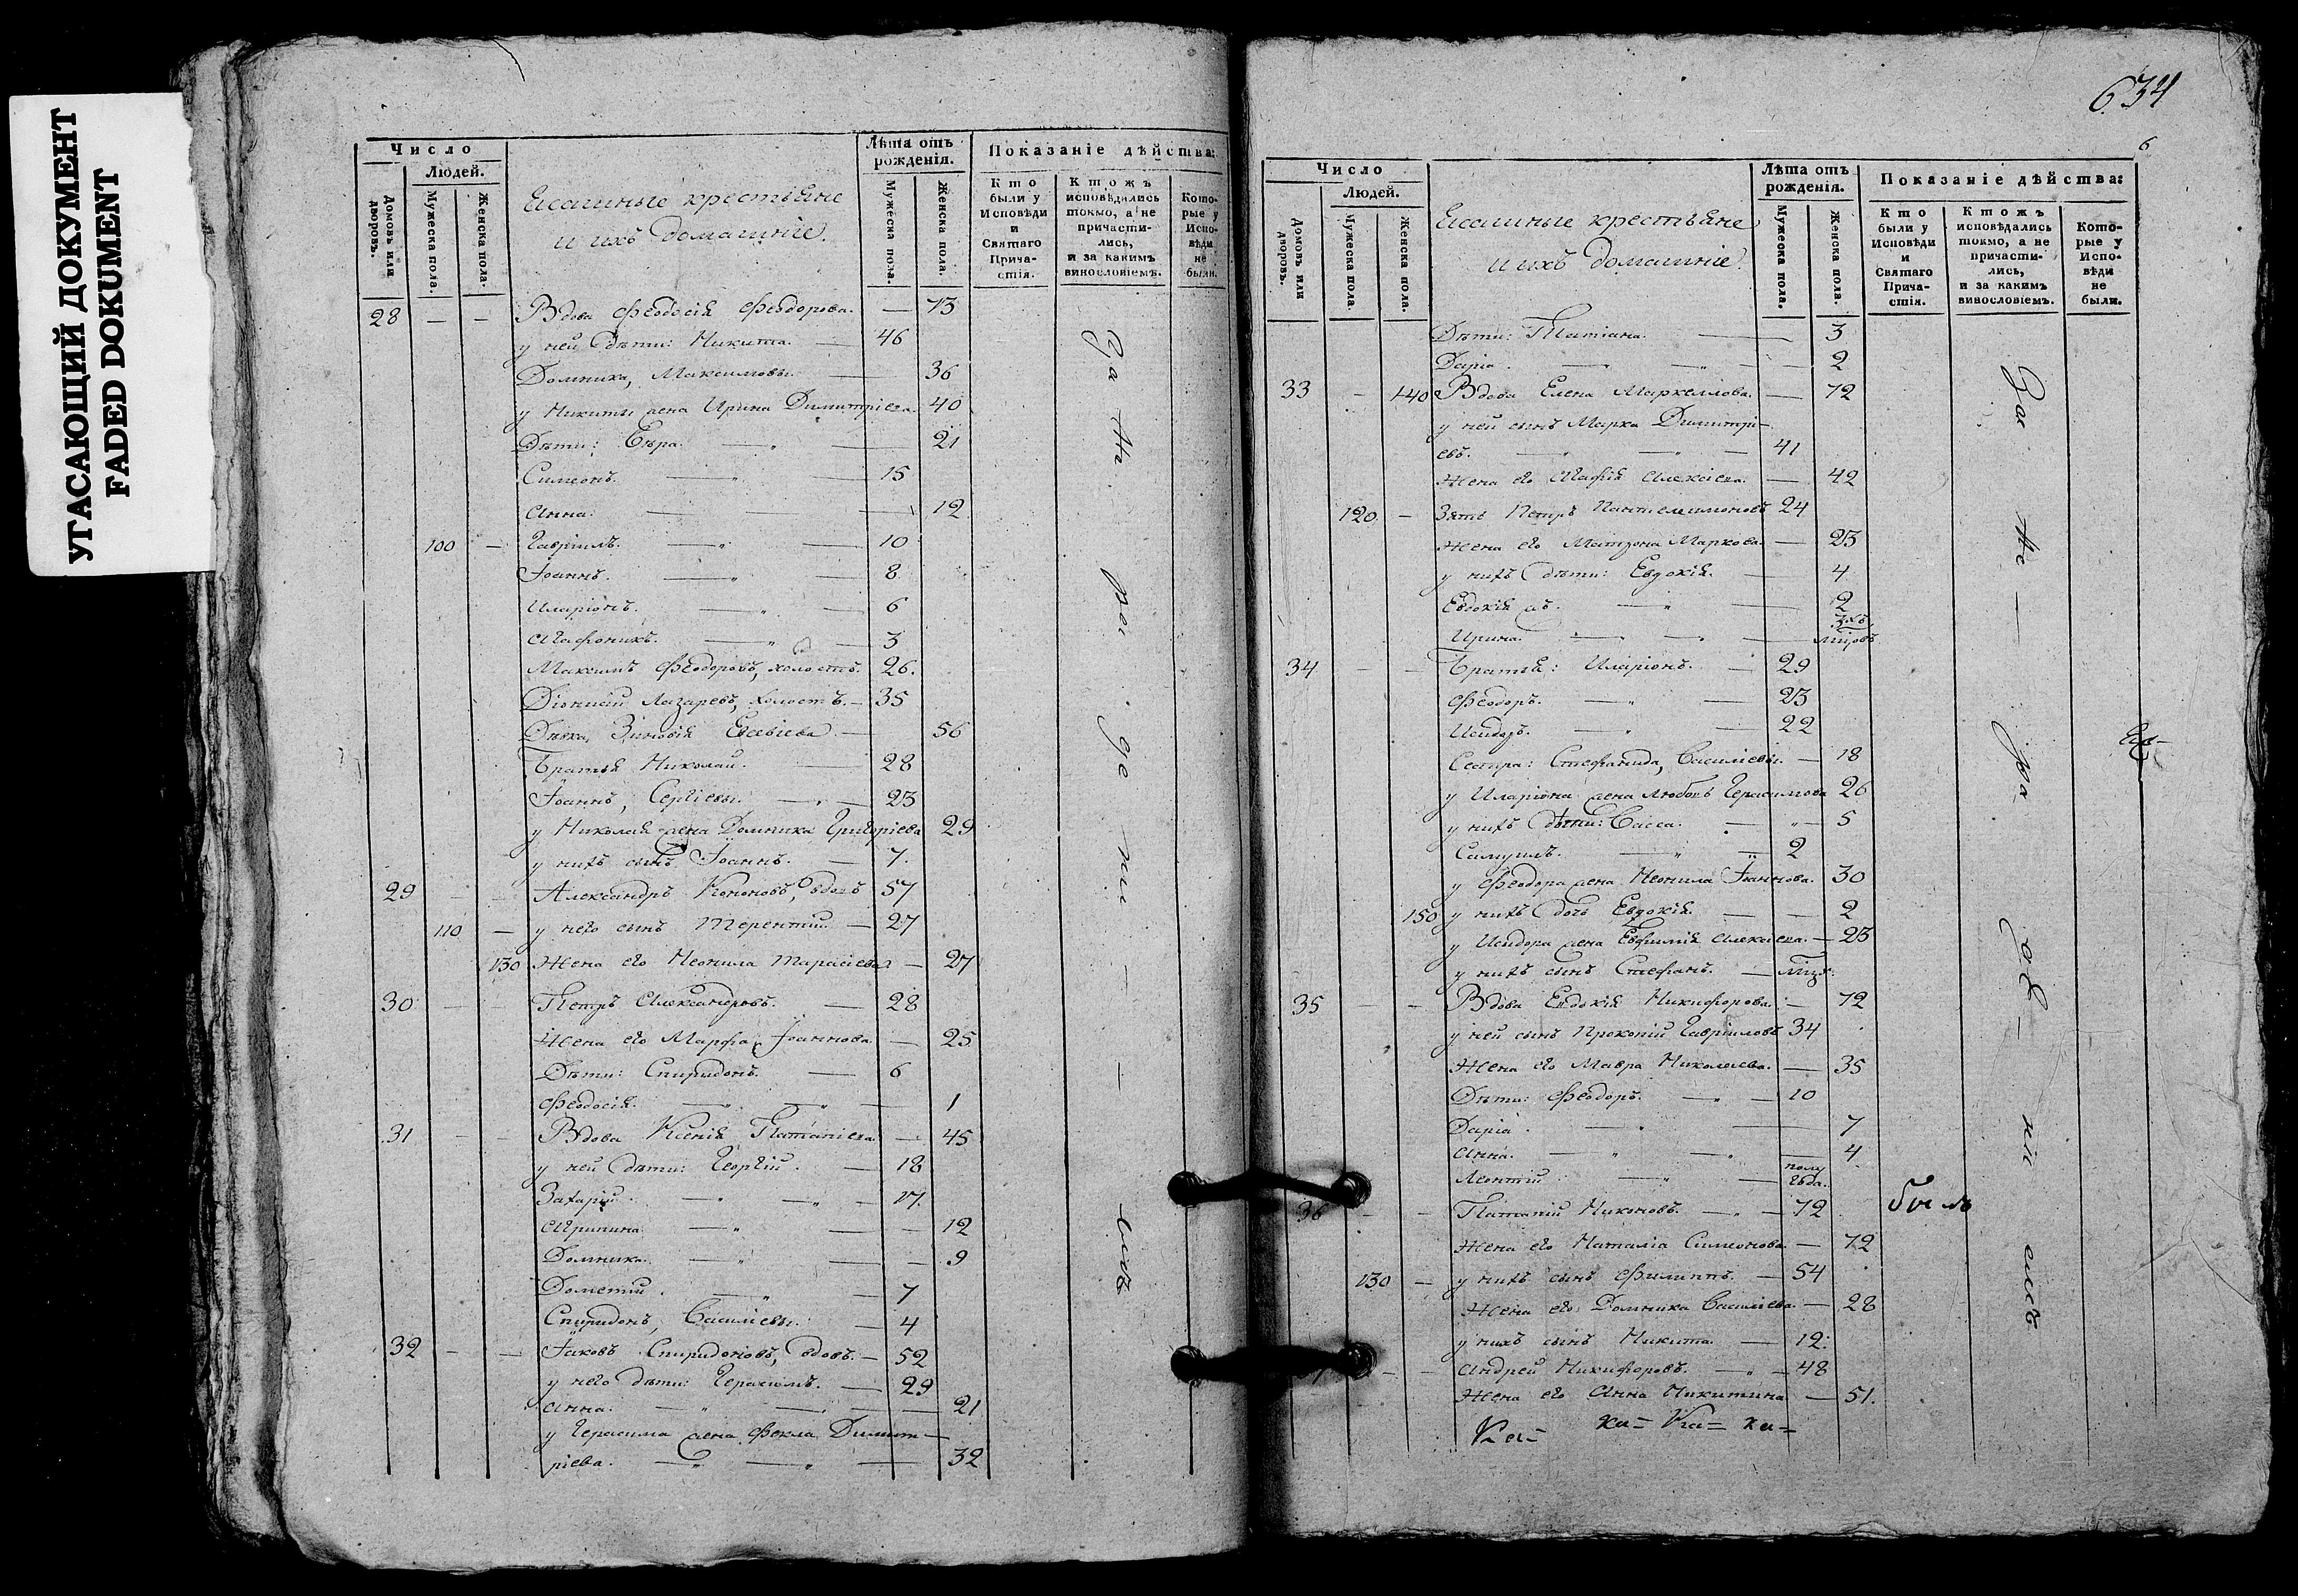 УГАСАЮЩИЙ ДОКУМЕНТ
FADED DOKUMENT
Число
Людей.
Домовъ или дворовъ.
Мужеска пола.
Женска пола.
крестьяне
и ихъ домашніе.
Лѣта отъ рожденія.
Мужеска пола.
Женска пола.
Показаніе дѣйства:
Кто были у Исповѣди и Святаго Причастія.
Ктожъ исповѣдались токмо, а не причастились, и за какимъ винословіемъ.
Которые у Исповѣди не были.
28 — — Вдова Феодосія Феодорова. — 73
у ней дѣти: Никита. — 46
Домника, Максимовы. — 36
у Никиты жена Ирина Димитріева. 40
Дѣти: Вѣра. — 21
Симеонъ. — 15
Анна. — 12
100 — Гавріилъ. — 10
Іоаннъ. — 8
Иларіонъ. — 6
Агафоникъ. — 3
Максимъ Феодоровъ, холостъ. 26.
Діонисій Лазаревъ, холостъ. — 35
Дѣвка, Зиновія Евсевіева — 56
Братья Николай. — 28
Іоаннъ, Сергіевы. — 23
у Николая жена Домника Григоріева 29
у нихъ сынъ Іоаннъ. — 7.
29 — — Александръ Кононовъ, вдовъ 57
110 — у него сынъ Терентій. — 27
130 Жена его Неонила Тарасіева — 27
30 — — Петръ Александровъ. — 28
Жена его Марфа Іоаннова — 25
Дѣти: Спиридонъ. — 6
Феодосія. — 1
31 — — Вдова Ксенія Патапіева — 45
у ней дѣти: Георгій. — 18
Захарій. — 17.
Агрипина — 12
Домника. — 9
Дометій. — 7
Спиридонъ, Василіевы. — 4
32 — — Іаковъ Спиридоновъ, вдовъ. — 52
у него дѣти: Герасимъ. — 29
Анна. — 21
у Герасима жена Фекла Димит-
ріева. — 32
За не ра де ні емъ
634
6
Число
Людей.
Домовъ или дворовъ.
Мужеска пола.
Женска пола.
крестьяне
и ихъ домашніе.
Лѣта отъ рожденія.
Мужеска пола.
Женска пола.
Показаніе дѣйства:
Кто были у Исповѣди и Святаго Причастія.
Ктожъ исповѣдались токмо, а не причастились, и за какимъ винословіемъ.
Которые у Исповѣди не были.
Дѣти: Татіана. — 3
Дарія. — 2
33 — 140 Вдова Елена Маркеллова. — 72
у ней сынъ Марка Димитрі-
евъ. — 41
Жена его Агафія Алексіева. — 42
120 — Зять Петръ Пантелеимоновъ 24
Жена его Матрона Маркова. — 23
у нихъ дѣти: Евдокія. — 4
Евдокія жъ. — 2
Ирина. — 3хъ мцовъ
34 — — Братья: Иларіонъ. — 29
Феодоръ. — 23
Исидоръ. — 22
Сестра: Стефанида, Василіевы. — 18
у Иларіона жена Любовь Герасимова 26
у нихъ дѣти: Васса. — 5
Самуилъ. — 2
у Феодора жена Неонила Іоаннова. 30
150 у нихъ дочь Евдокія. — 2
у Исидора жена Евфимія Алексіева. — 23
у нихъ сынъ Стефанъ. — мцъ
35 — — Вдова Евдокія Никифорова. — 72
у ней сынъ Прокопій Гавріиловъ 34
Жена его Мавра Николаева. — 35
Дѣти: Феодоръ. — 10
Дарія. — 7
Анна. — 4
Леонтій — полу года.
36 — — Патапій Никоновъ. — 72 былъ
Жена его Наталіа Симеонова — 72
130 — у нихъ сынъ Филиппъ. — 54
Жена его Домника Василіева. — 28
у нихъ сынъ Никита. — 12.
Андрей Никифоровъ. — 48
Жена его Анна Никитина — 51.
Ка= ка= Ка= ка=
За не — ра де — ні емъ